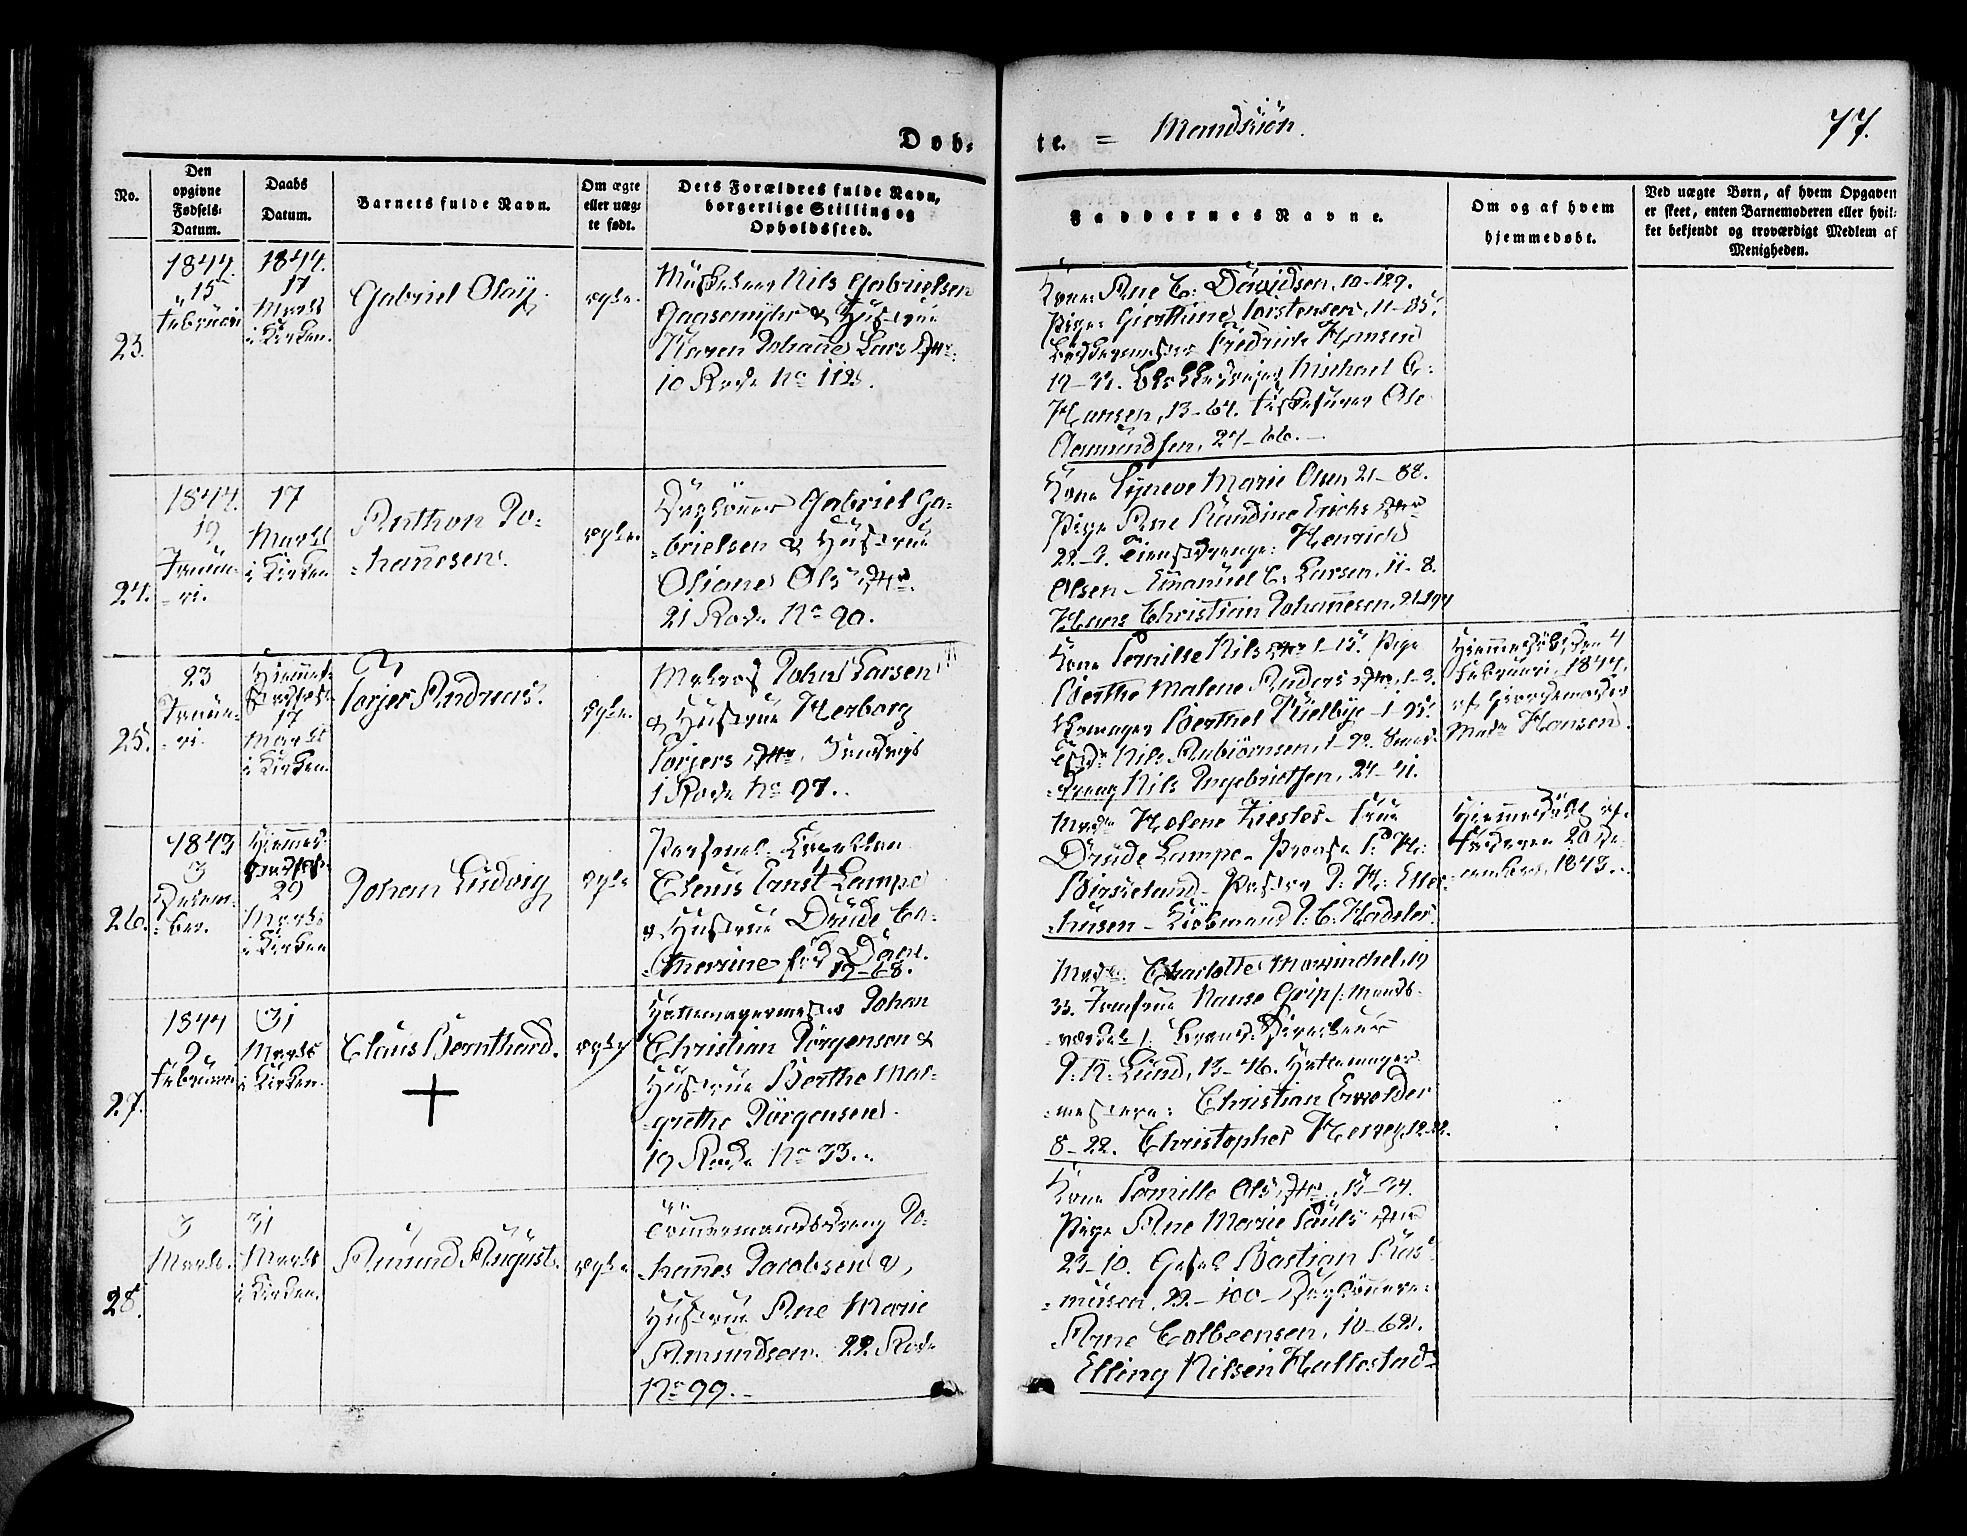 Døb-
te. = Mandkiøn.
77.
No.
Den
opgivne
Fødsels-
Datum.
Daabs
Datum.
Barnets fulde Navn.
Om ægte
eller uæg-
te født.
Dets Forældres fulde Navn,
borgerlige Stilling og
Opholdssted.
Faddernes Navne.
Om og af hvem
hjemmedøbt.
Ved uægte Børn, af hvem Opgaven
er skeet, enten Barnemoderen eller hvil-
ket bekjendt og troværdigt Medlem af
Menigheden.
23.
1844.
15
Februari
1844.
17
Marts
i Kirken.
Gabriel Olay.
ægte.
Nils Gabrielsen
Gaasemyhr & Hustrue
Karen Johanne Lars Dtr.
10 Rode No 112.
Kone Ane C. Davidsen, 10-129.
Pige Giertine Torstensen, 11-85.
Fredrich Hansen
Michael C.
Hansen, 13-64. Ole
Aamundsen, 24-66.
24.
1844.
19
Januu-
-ri.
17
Marts
i Kirken
Anthon Jo-
-hannesen.
ægte.
Gabriel Ga-
-brielsen & Hustrue
Oliane Ols Dtr.
21 Rode No 90.
Kone Marie Olsen 21-88.
Pige Ane Randine Erichs Dtr
22-3. Tienstdrenge: Henrich
Olsen - Emanuel C. Larsen, 11-8.
Hans Christian Johannesen, 21-194
25.
23
Januu-
-ri.
Hiemmet-
17
Marts
i Kirken.
Torjer Andreas.
ægte.
Matros Johan Larsen
& Hustrue Herborg
Torjers Dtr.
1 Rode No 97.
Kone Pernille Nils Dtr 1-15. Pige
Berthe Malene Anders Dtr, 1-3.
Berthel Kielbye - 1-95.
Nils Aubiørnsen, 1-92.
-dreng Nils Ingebrietsen, 24-41.
Hiemmedøbt, den 4
Februari, 1844,
af Giordemoder
Mad. Hansen.
26.
1843
3
Decem-
-ber.
Hiemmet
29
Marts
i Kirken
Johan Ludvig
ægte
Personel. Capellan
Claus Ernst Lampe
& Hustrue Drude Ca-
-thrarine født Dahl.
19-68.
Mad. Helene Kiester - Frue
Drude Lampe - Provst P. H.
Birkeland - Pastor J. H. Etter-
-husen - Kiøbmand J. C. Hadeler.
Hiemmedøbt af
Faderen 20 De-
-cember, 1843.
27.
1844
9
Februari
31
Marts
i Kirken.
Claus Bernthard.
+
ægte
Hattemagermester Johan
Christian Jørgensen &
Hustrue Berthe Mar-
-grethe Jørgensen.
19 Rode No 33.
Mad. Charlotte 19
33. Jomfrue Hanse Grip
1.
J. R. Lund, 13-46. Hattemager-
-mestere: Christian Ewolder
8-22. Christopher Hervey, 12-22.
28.
3
Marts.
31
Marts
i Kirken.
Amund August.
ægte
Tømmermandsdreng Jo-
hannes Jacobsen &
Hustrue Ane Marie
Amundsen. 22 Rode
No 99.
Kone Pernille Ols Dtr, 15-34.
Pige Ane Marie Pauls Dtr
23-10. Bastian Ras-
-musen, 22-100 -
Arne Colbeensen, 10-62.
Elling Nilsen Hallestad